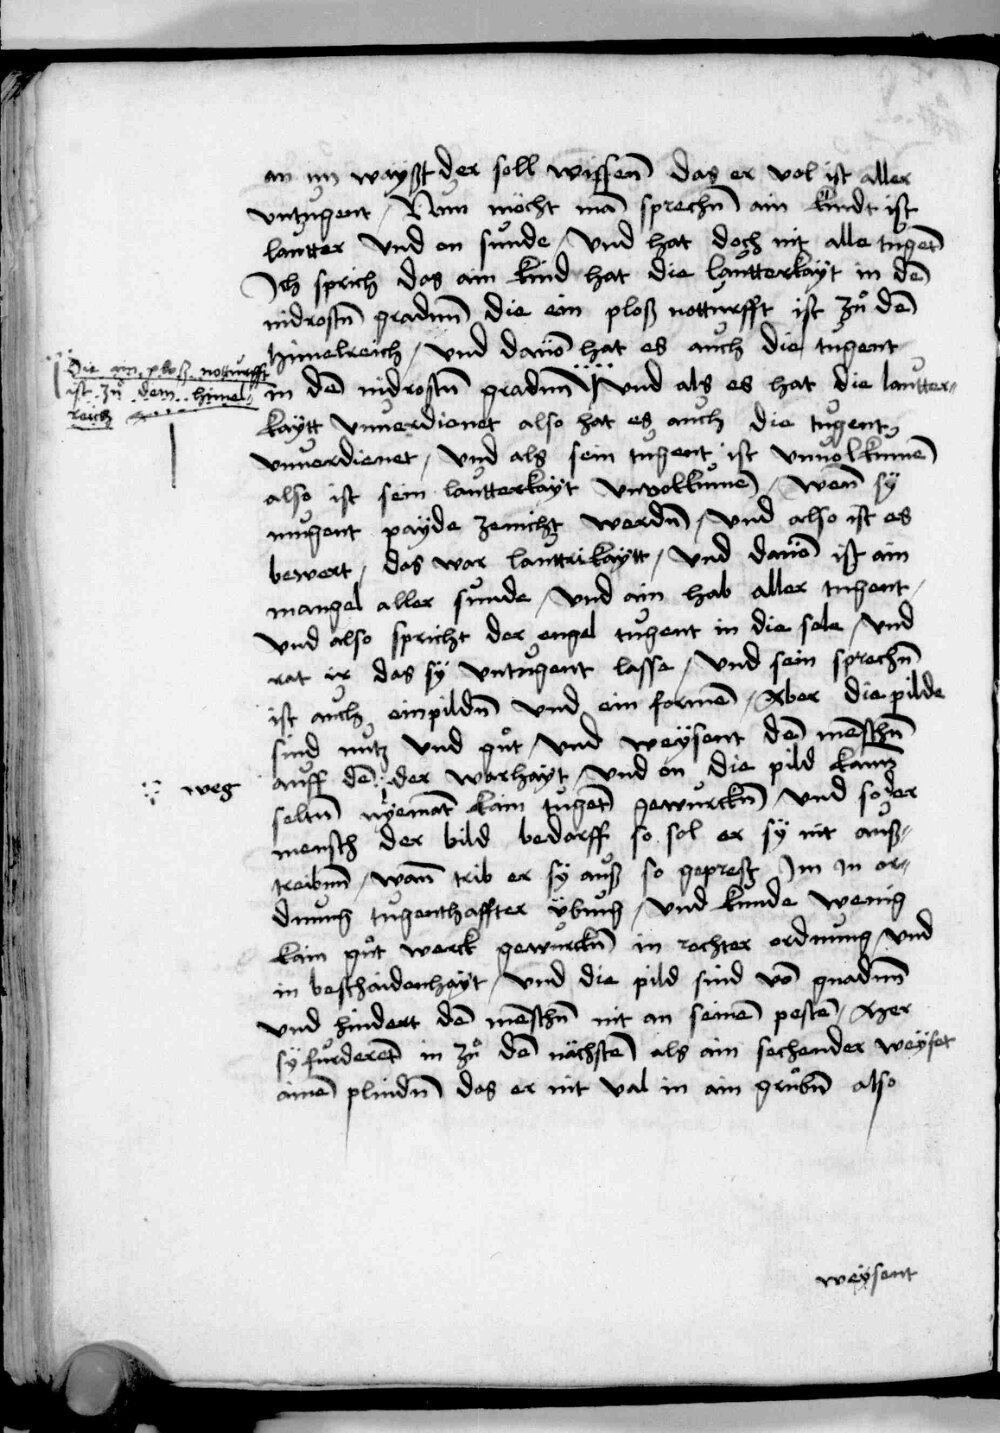 an im wayßt der soll wissen̄ das er vol ist aller
vntugent / Nun möcht mā sprechn̄ ain kindt ist
lautter vnd on sunde / vnd hat doch nit alle tuget̄
Ich sprich das ain kind hat die lautterkayt in dē
nidrostn̄ gradum̄ die ein ploß notturfft ist zů dē
himelreich / vnd dauō hat es auch die tugent
Die ain ploß notturfft
ist zů dem himel-
reich
in dē nidrostn̄ gradum̄ / vnd als es hat die lautter-
kaytt vnuerdienet also hat es auch die tugent
vnuerdienet / vnd als sein tugent ist vnuolkumē
also ist sein lautterkayt vnvolkumē / wen̄ sy
mugent payde zenicht werdn̄ / vnd also ist es
bewert / das war lauttrikaytt / vnd dauō ist ain
mangel aller sunde / vnd ain hab aller tugent /
vnd also spricht der engel tugent in die sele / vnd
rat ir das sÿ vntugent lasse / vnd sein sprechn̄
ist auch einpildn̄ vnd ein formē / Aber die pilde
sind nutz vnd gůt / vnd weÿsent dē mēschn̄
auff dē der warhayt / vnd on die pild kam̄
weg
seltn̄ nÿemāt kain tuget̄ gewurckn̄ / vnd so der
mensch der bild bedarff so sol er sÿ nit auß-
treibn̄ / wan̄ trib er sÿ auß so geprest Im In or-
dnung tugenthaffter ÿbung / vnd kunde wenig
kain gůt werck gewurckn̄ in rechter ordnung / vnd
in beschaidenhayt / vnd die pild sind vō gnadn̄
vnd hindert dē mēschn̄ nit an seinē pestē / Aber
sÿ furderet̄ in zů dē nächstē als ain sechender weÿset
ainē plindn̄ das er nit val in ain grůbn̄ also
weÿsent